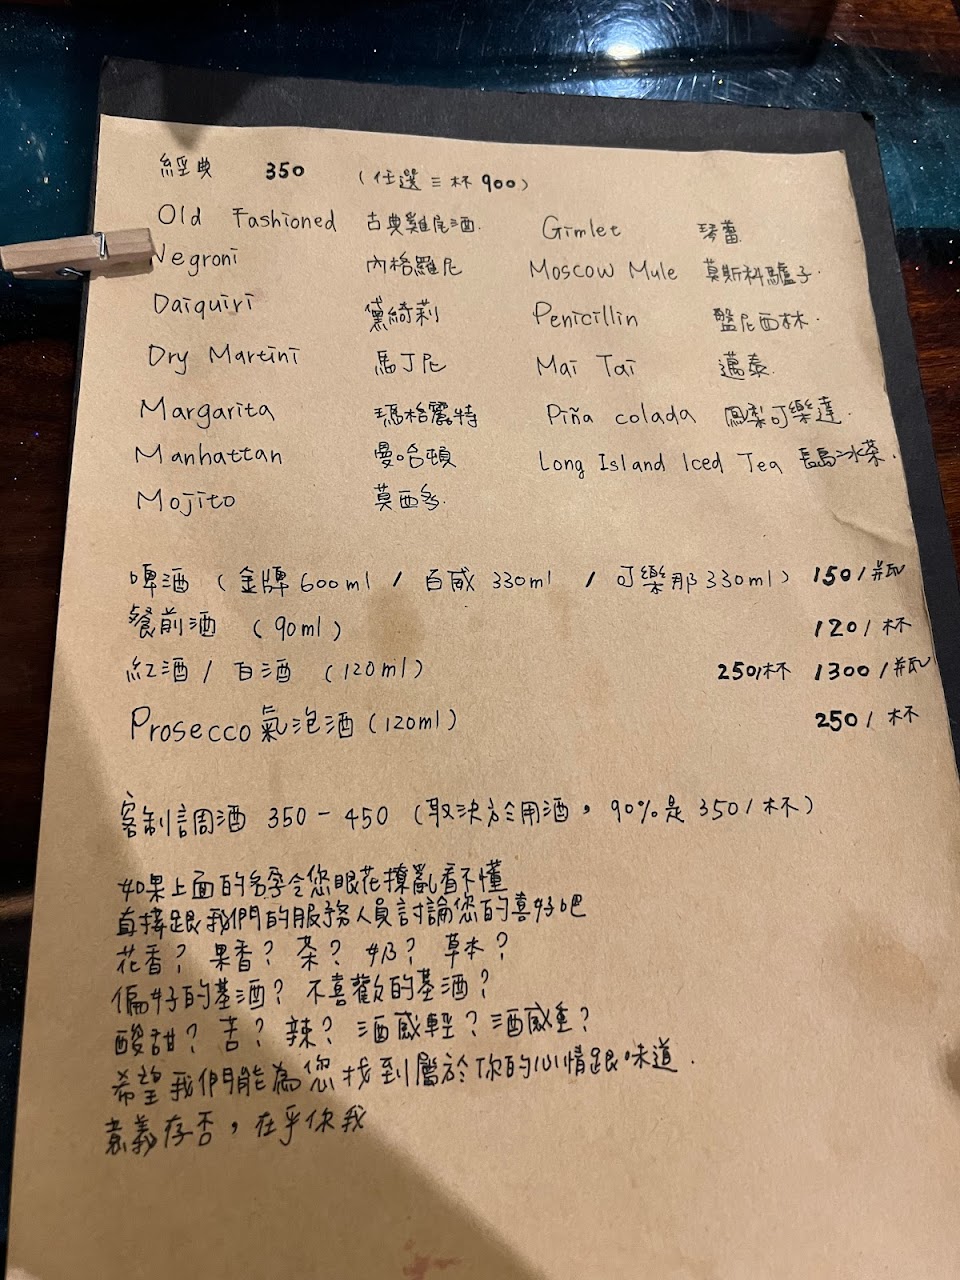 經典 350 (任選三杯 900)
Old Fashioned 古典雞尾酒. Gimlet 琴蕾
Negroni 內格羅尼 Moscow Mule 莫斯科驢子.
Daiquiri 黛綺莉 Penicillin 盤尼西林.
Dry Martini 馬丁尼 Mai Tai 邁泰.
Margarita 瑪格麗特 Piña colada 鳳梨可樂達.
Manhattan 曼哈頓 Long Island Iced Tea 長島冰茶.
Mojito 莫西多.
啤酒 (金牌 600ml / 百威 330ml / 可樂那 330ml) 150/瓶
餐前酒 (90ml) 120/杯
紅酒/白酒 (120ml) 250/杯 1300/瓶
Prosecco 氣泡酒 (120ml) 250/杯
客制調酒 350-450 (取決於用酒，90%是350/杯)
如果上面的名字令您眼花撩亂看不懂
直接跟我們的服務人員討論您的喜好吧
花香? 果香? 茶? 奶? 草本?
偏好的基酒? 不喜歡的基酒?
酸甜? 苦? 辣? 酒感輕? 酒感重?
希望我們能為您找到屬於你的心情跟味道.
意義存否，在乎你我